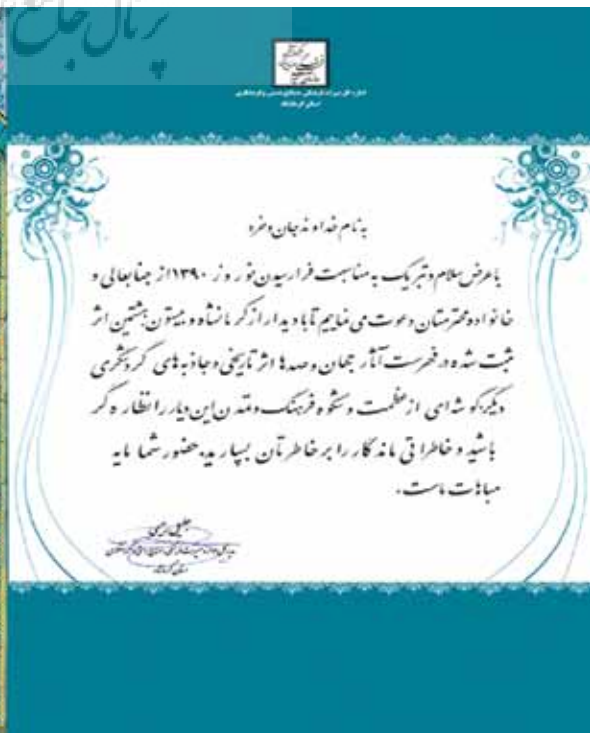 پرتال جامع
اداره کل میراث فرهنگی، صنایع دستی و گردشگری
استان کرمانشاه
به نام خداوند جان و خرد
با عرض سلام و تبریک به مناسبت فرا رسیدن نوروز ۱۳۹۰ از جنابعالی و
خانواده محترمتان دعوت می نماییم تا با دیدار از کرمانشاه و بیستون هشتمین اثر
ثبت شده در فهرست آثار جهان و صدها اثر تاریخی و جاذبه های گردشگری
دیگر گوشه ای از عظمت و شکوه فرهنگ و تمدن این دیار را نظاره گر
باشید و خاطراتی ماندگار را بر خاطرتان بسپارید. حضور شما مایه
مباهات ماست.
استان کرمانشاه